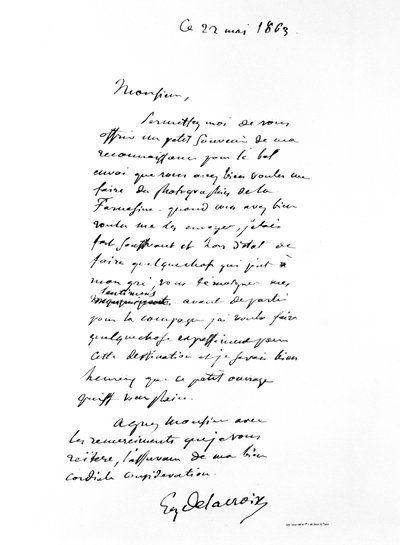 Ce 22 mai 1863
Monsieur,
Permettez moi de vous
offrir un petit souvenir de ma
reconnaissance pour le bel
envoi que vous avez bien voulu me
faire des photographies de la
Farnesine. quand vous avez bien
voulu me les envoyer, j'étais
fort souffrant et hors d'état de
faire quelquechose qui put à
mon gré, vous témoigner mes
sentimens
avant de partir
pour la campagne j'ai voulu faire
quelquechose expressément pour
cette destination et je serais bien
heureux que ce petit ouvrage
put vous plaire.
Agréez Monsieur avec
les remerciments que je vous
reitere, l'assurance de ma bien
cordiale considération.
Eug Delacroix